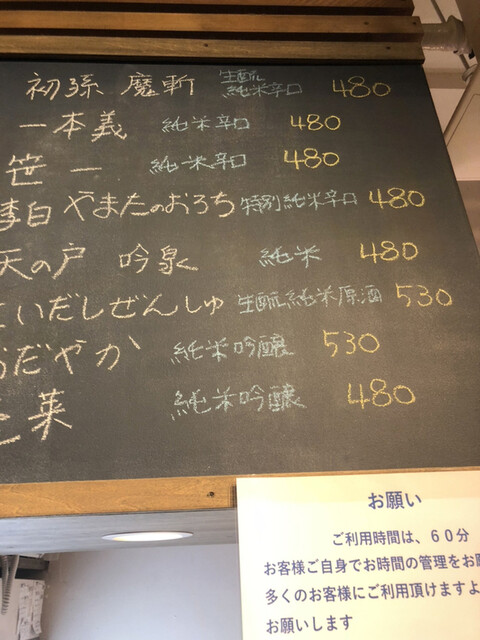 初孫 魔斬 生酛純米辛口 480
一本義 純米辛口 480
笹一 純米辛口 480
李白 やまたのおろち 特別純米辛口 480
天の戸 吟泉 純米 480
いだしぜんしゅ 生酛純米原酒 530
おだやか 純米吟醸 530
来 純米吟醸 480
お願い
ご利用時間は、60分
お客様ご自身でお時間の管理をお
多くのお客様にご利用頂けますよ
お願いします